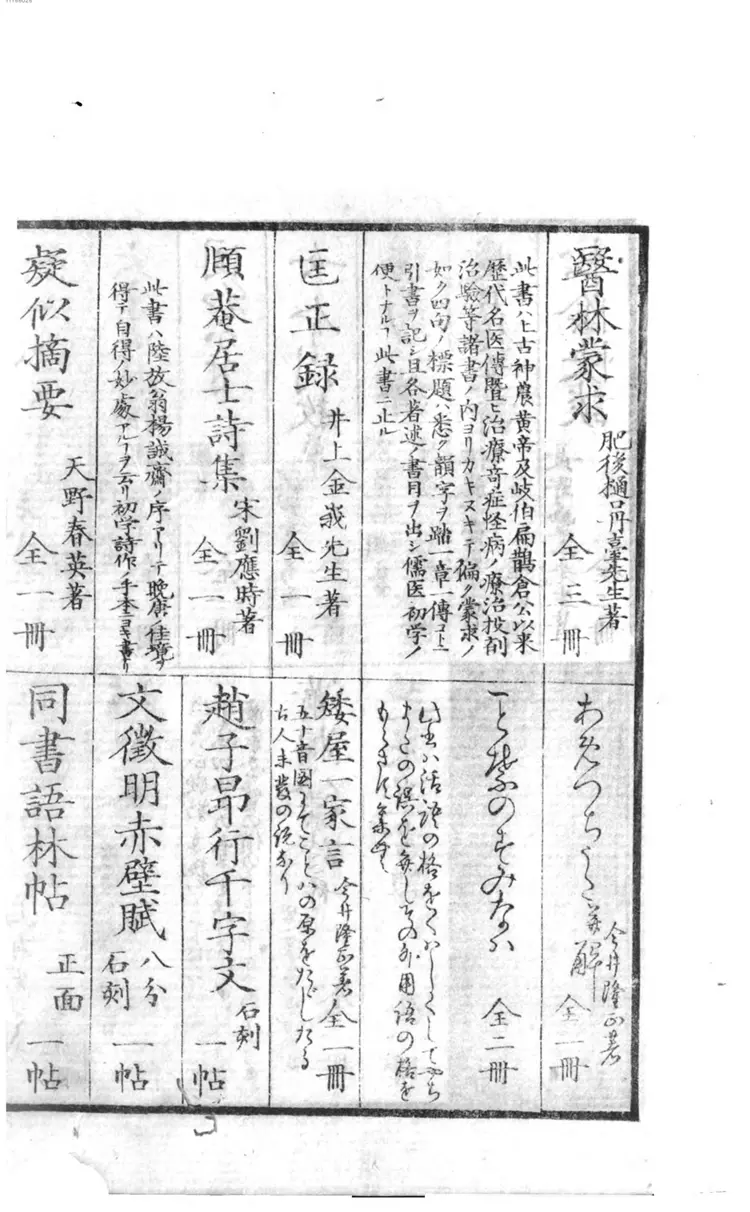 醫林蒙求
肥後樋口丹臺先生著
全三冊
此書ハ上古神農黄帝及岐伯扁鵲倉公以来
歴代名医傳曁ヒ治療竒症怪病ノ療治投剤
治驗等諸書ノ内ヨリカキヌキテ徧ク蒙求ノ
如ク四句ノ標題ハ悉ク韻字ヲ踏一章一傳コトニ
引書ヲ記シ且各著述ノ書目ヲ出シ儒医初学ノ
便トナルヿ此書ニ止ル
匡正録
井上金峩先生著
全一冊
頤菴居士詩集
宋劉應時著
全一冊
此書ハ陸放翁楊誠齋ノ序アリテ晩唐ノ佳境ヲ
得テ自得ノ妙處アルヿヲ云リ初学詩作ノ手本ヨキ書ナリ
疑似摘要
天野春英著
全一冊
あめつちうた
解
今井隆正著
全一冊
のすみなは
全二冊
此書ハ活語の格をくハしくしてあやち
もらさす
矮屋一家言
今井隆正著
全一冊
五十音圖もてことハの原をたゞしたる
古人未發の説なり
趙子昂行千字文
石刻
一帖
文徴明赤壁賦
八分
石刻
一帖
同書語林帖
正面
一帖